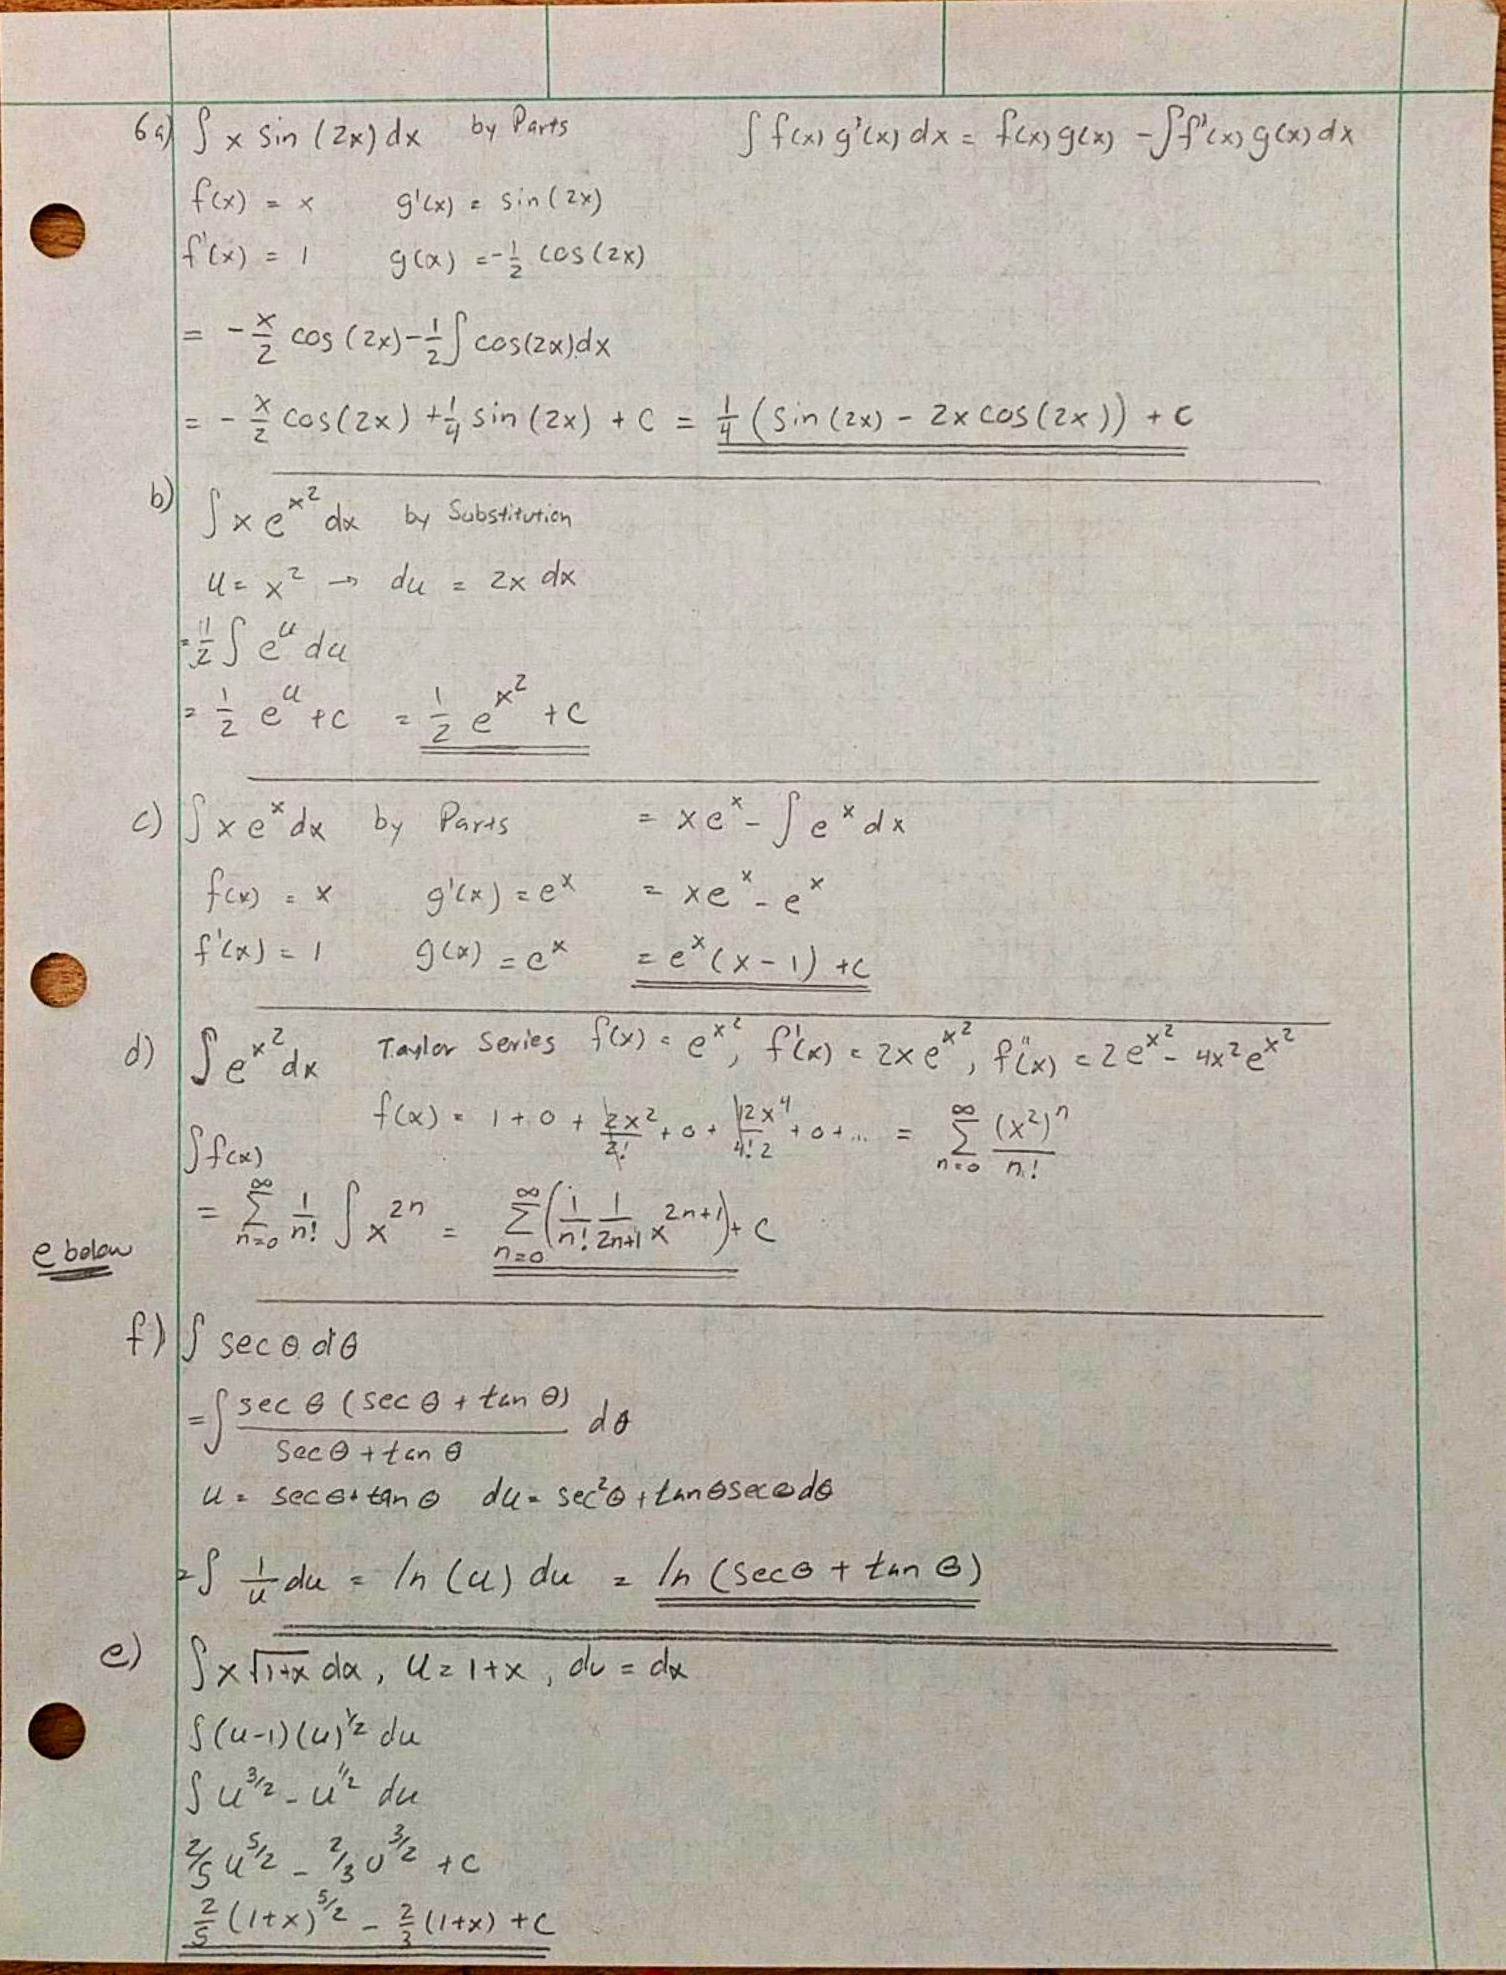 6a) ∫ x sin (2x) dx by Parts ∫ f(x) g'(x) dx = f(x) g(x) - ∫ f'(x) g(x) dx
f(x) = x g'(x) = sin(2x)
f'(x) = 1 g(x) = -1/2 cos(2x)
= -x/2 cos (2x) - 1/2 ∫ cos(2x) dx
= - x/2 cos(2x) + 1/4 sin (2x) + C = 1/4 (sin (2x) - 2x cos(2x)) + C
b) ∫ x e^{x^2} dx by Substitution
u = x^2 → du = 2x dx
= 1/2 ∫ e^u du
= 1/2 e^u + C = 1/2 e^{x^2} + C
c) ∫ x e^x dx by Parts = x e^x - ∫ e^x dx
f(x) = x g'(x) = e^x = x e^x - e^x
f'(x) = 1 g(x) = e^x = e^x (x - 1) + C
d) ∫ e^{x^2} dx Taylor Series f(x) = e^{x^2}, f'(x) = 2x e^{x^2}, f''(x) = 2e^{x^2} - 4x^2 e^{x^2}
f(x) = 1 + 0 + 2x^2/2! + 0 + 12x^4/4! 2 + 0 + ... = ∑_{n=0}^{∞} (x^2)^n/n!
∫ f(x)
= ∑_{n=0}^{∞} 1/n! ∫ x^{2n} = ∑_{n=0}^{∞} (1/n! 1/2n+1 x^{2n+1}) + C
e below
f) ∫ sec θ dθ
= ∫ sec θ (sec θ + tan θ)/sec θ + tan θ dθ
u = sec θ + tan θ du = sec^2 θ + tan θ sec θ dθ
= ∫ 1/u du = ln (u) du = ln (sec θ + tan θ)
e) ∫ x √1+x dx, u = 1+x, du = dx
∫ (u-1) (u)^{1/2} du
∫ u^{3/2} - u^{1/2} du
2/5 u^{5/2} - 2/3 u^{3/2} + C
2/5 (1+x)^{5/2} - 2/3 (1+x) + C